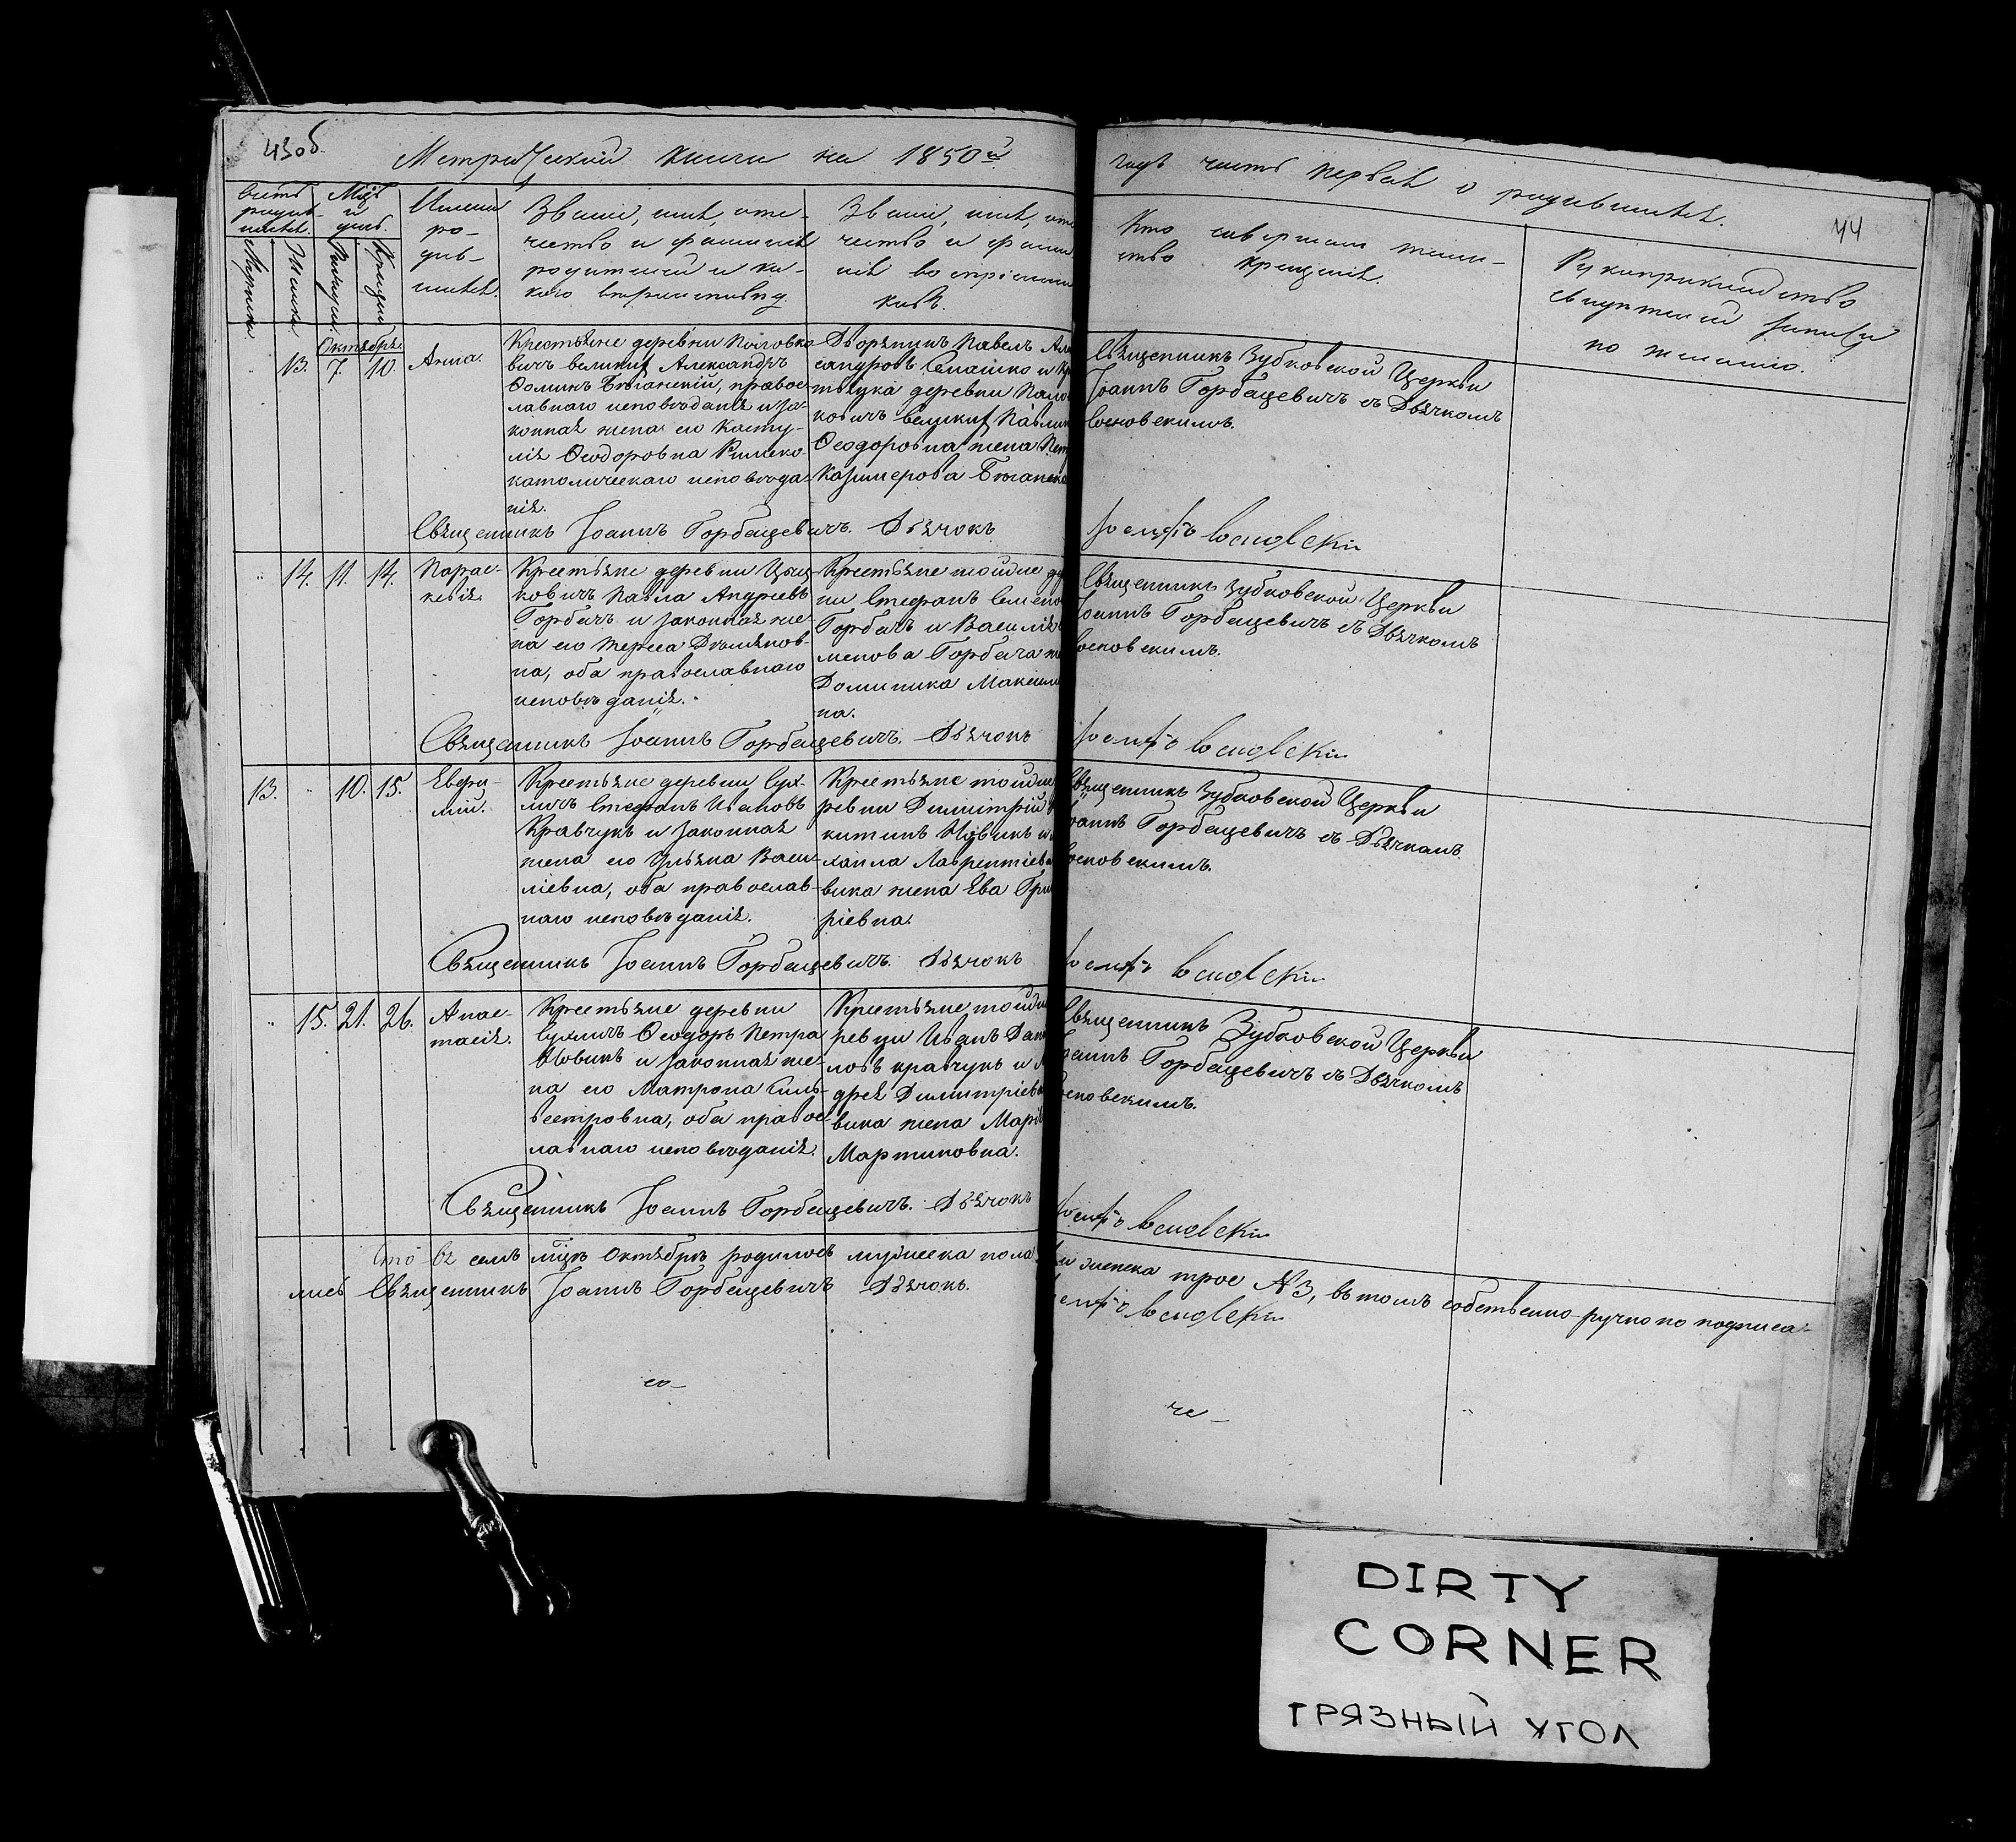 43об
Метрической книги на 1850й
годъ часть первая о родившихся.
44
Счетъ родив- шихся.
Мужска.
Женска.
Мѣс. и день.
Рожденія.
Крещенія.
Имена
ро-
див-
шихся.
Званіе, имя, оте-
чество и фамилія
родителей и ка-
кого вѣроисповѣд.
Званіе, имя, оте
чество и фами
лія воспріемни
ковъ.
Кто совершалъ таин-
ство крещенія.
Рукоприкладство
свидѣтелей записи
по желанію.
Октября.
13. 7. 10.
Анна.
Крестьяне деревни
вичъ великихъ Александръ
Ѳоминъ Бѣганскій, правос-
лавнаго исповѣданія и за-
конная жена его Касту-
лія Ѳеодоровна Римско-
католическаго исповѣда-
нія.
Дворянинъ Павелъ Але
сандровъ Семашко и кр
деревни
ковичъ великихъ
Ѳеодоровна жена Пет
Казимерова Бѣганска
Священникъ Зубковской Церкви
Іоаннъ Горбацевичъ съ Дьячкомъ
Сосновскимъ.
Священникъ Іоаннъ Горбацевичъ. Дьячокъ
Іосифъ Сосновскій
" 14. 11. 14.
Парас-
кевія.
Крестьяне деревни Цыц-
ковичъ Павла Андреевъ
Горбачъ и законная же-
на его Тереса Демьянов-
на, оба православнаго
исповѣданія.
Крестьяне тойже де
ни Стефанъ Семено
Горбачъ и Василія
менова Горбача же
Доминика Максими
на.
Священникъ Зубковской Церкви
Іоаннъ Горбацевичъ съ Дьячкомъ
Сосновскимъ.
Священникъ Іоаннъ Горбацевичъ. Дьячокъ
Іосифъ Сосновскій
13. " 10. 15.
Евфи-
мій.
Крестьяне деревни Сух-
личъ Стефанъ Ивановъ
Кравчукъ и законная
жена его Ульяна Васи-
ліевна, оба православ-
наго исповѣданія.
Крестьяне тойже
ревни Димитрій
китинъ Новикъ и
хаила Лаврентіева
вика жена Ева Гри
ріевна.
Священникъ Зубковской Церкви
Іоаннъ Горбацевичъ съ Дьячкомъ
Сосновскимъ.
Священникъ Іоаннъ Горбацевичъ. Дьячокъ
Іосифъ Сосновскій
" 15. 21. 26.
Анас-
тасія.
Крестьяне деревни
Сухличъ Ѳеодоръ Петра
Новикъ и законная же-
на его Матрона Силь-
вестровна, оба правос-
лавнаго исповѣданія.
Крестьяне тойже
ревни Иванъ Дани
ловъ кравчукъ и А
дрея Димитріева
вика жена Марія
Мартиновна.
Священникъ Зубковской Церкви
Іоаннъ Горбацевичъ съ Дьячкомъ
Сосновскимъ.
Священникъ Іоаннъ Горбацевичъ. Дьячокъ
Іосифъ Сосновскій
Что въ семъ мцѣ Октябрѣ родилось мужеска пола
и женска трое №3, въ томъ собственно-ручно подписа-
лись Священникъ Іоаннъ Горбацевичъ Дьячокъ.
Іосифъ Сосновскій
DIRTY
CORNER
ГРЯЗНЫЙ УГОЛ